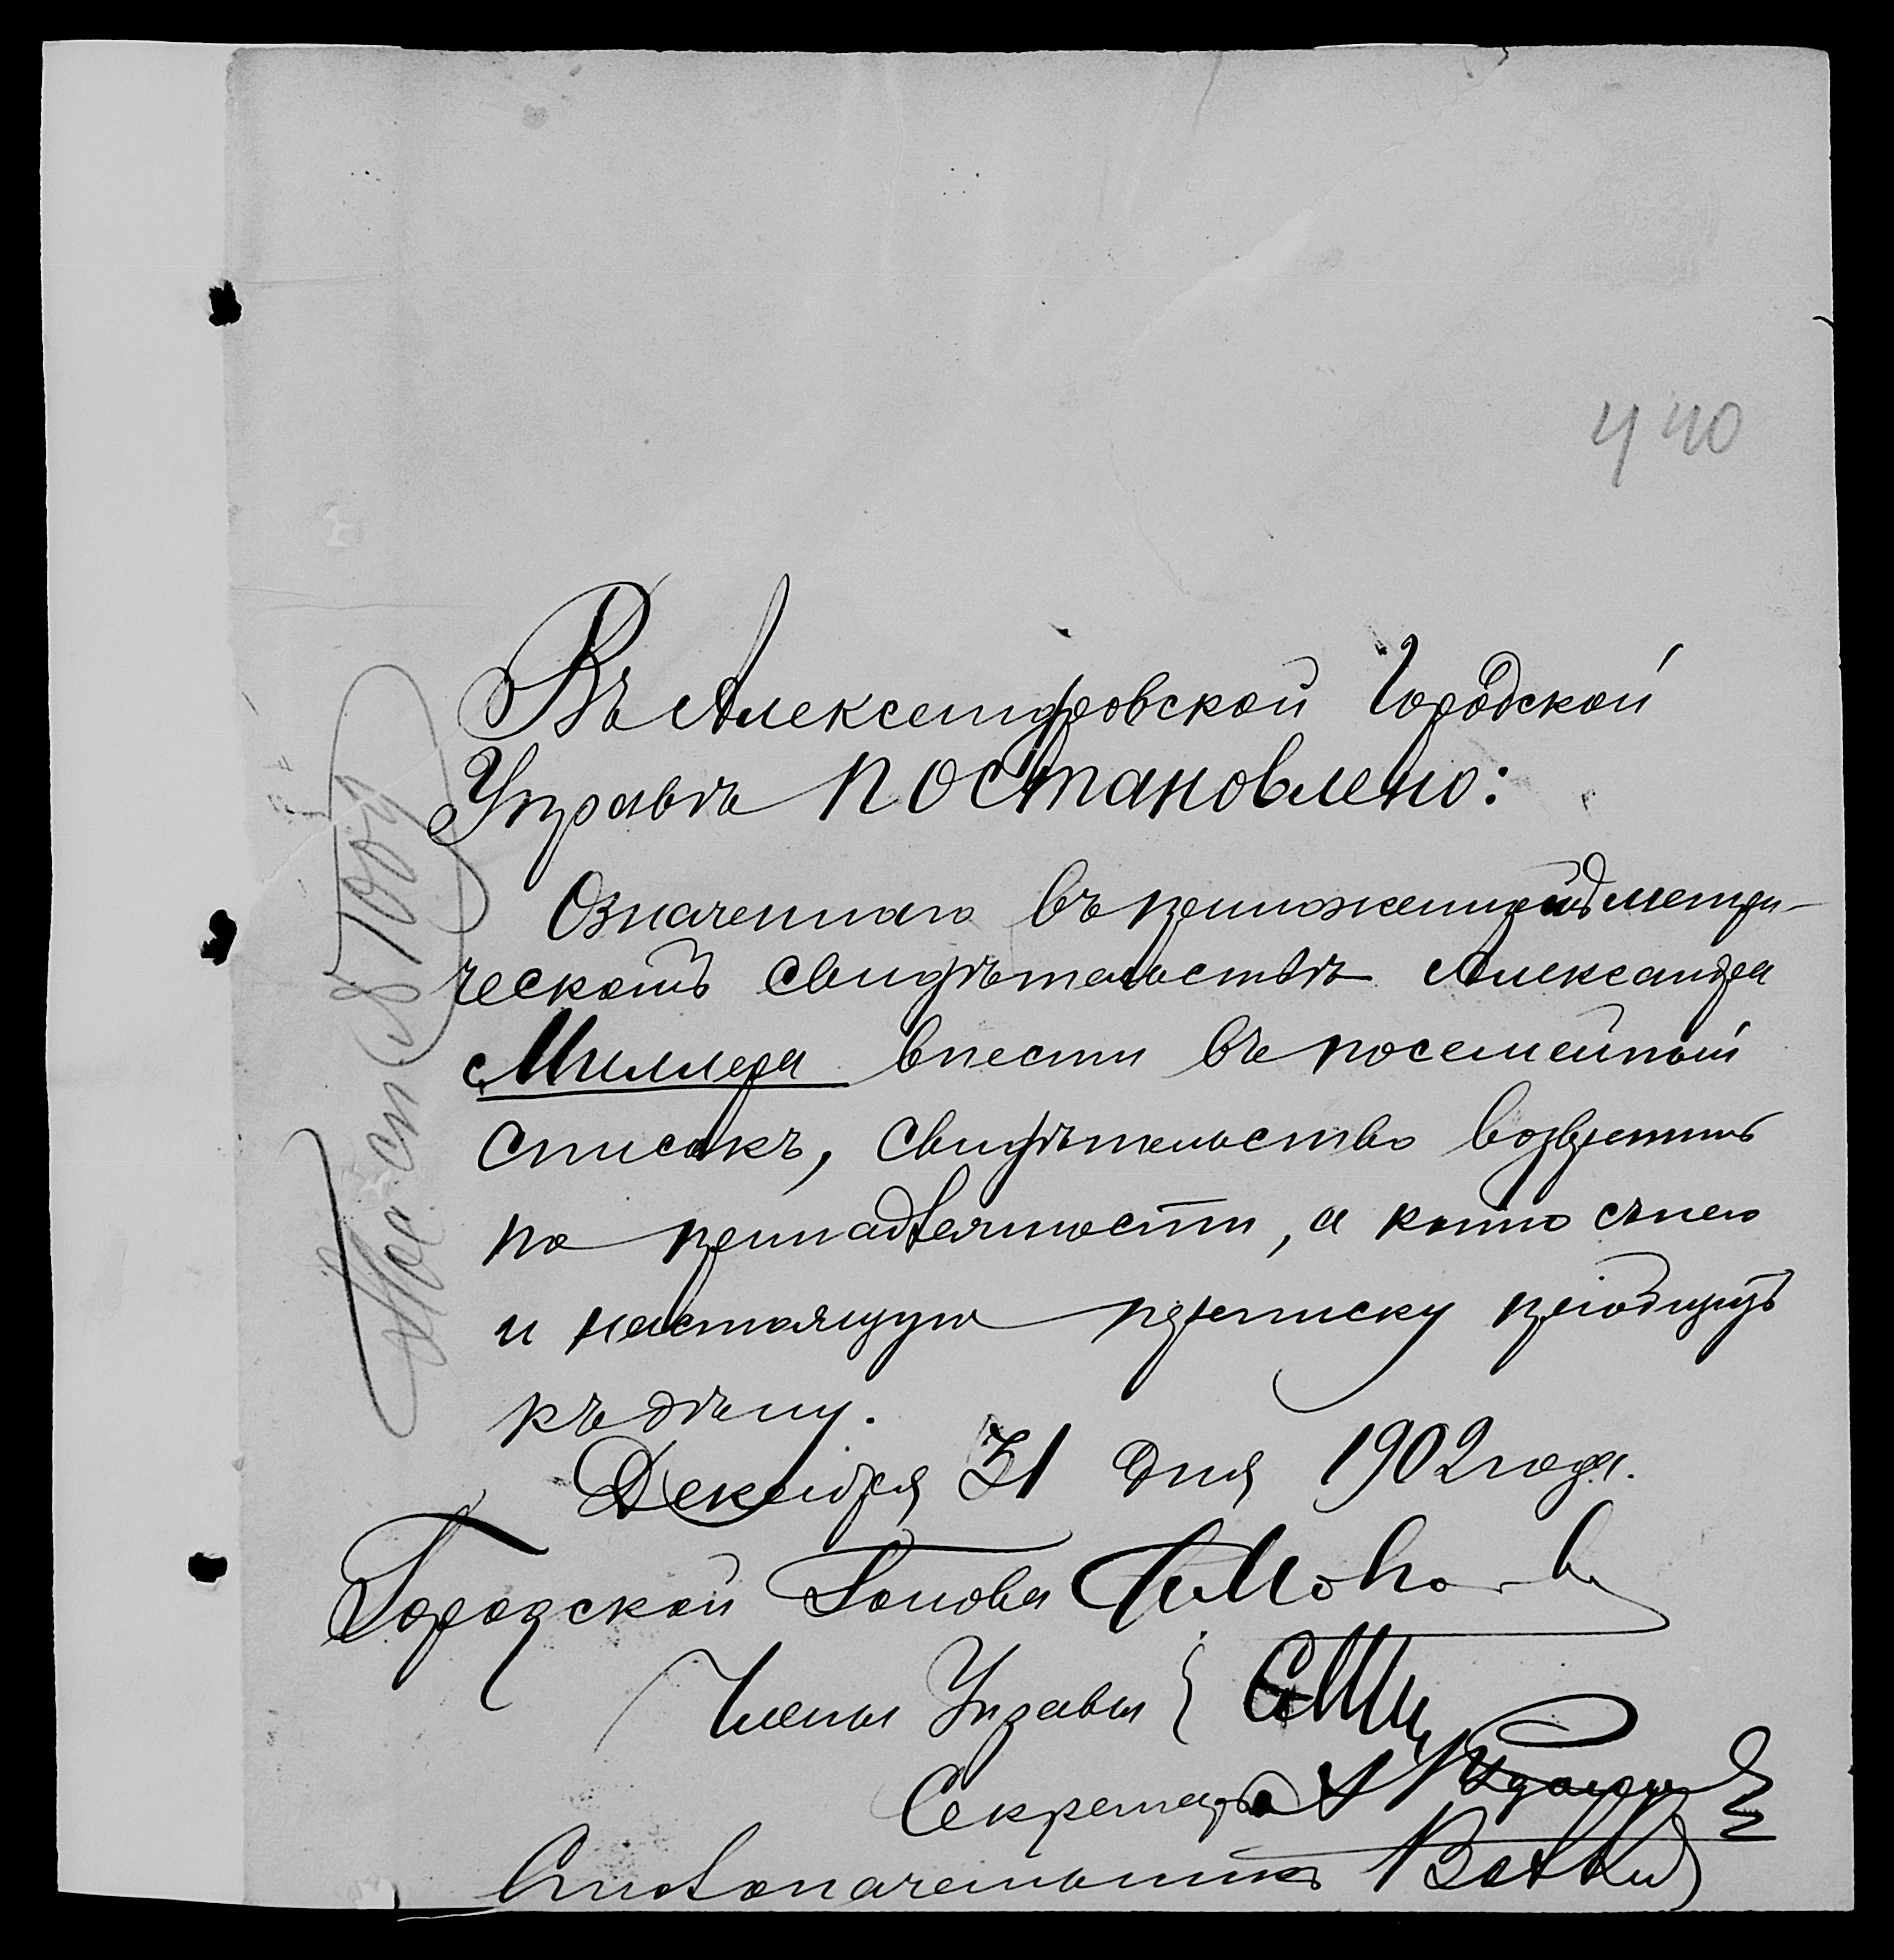 440
Въ Александровской Городской
Управѣ постановлено:
Означеннаго въ приложенномъ метри-
ческомъ свидѣтельствѣ Александра
Миллера внести въ посемейный
списокъ, свидѣтельство возвратить
по принадлежности, а копію съ него
и настоящую расписку пріобщить
къ дѣлу.
Декабря 31 дня 1902 года.
Городской Голова
Члены Управы
Секретарь
Столоначальникъ